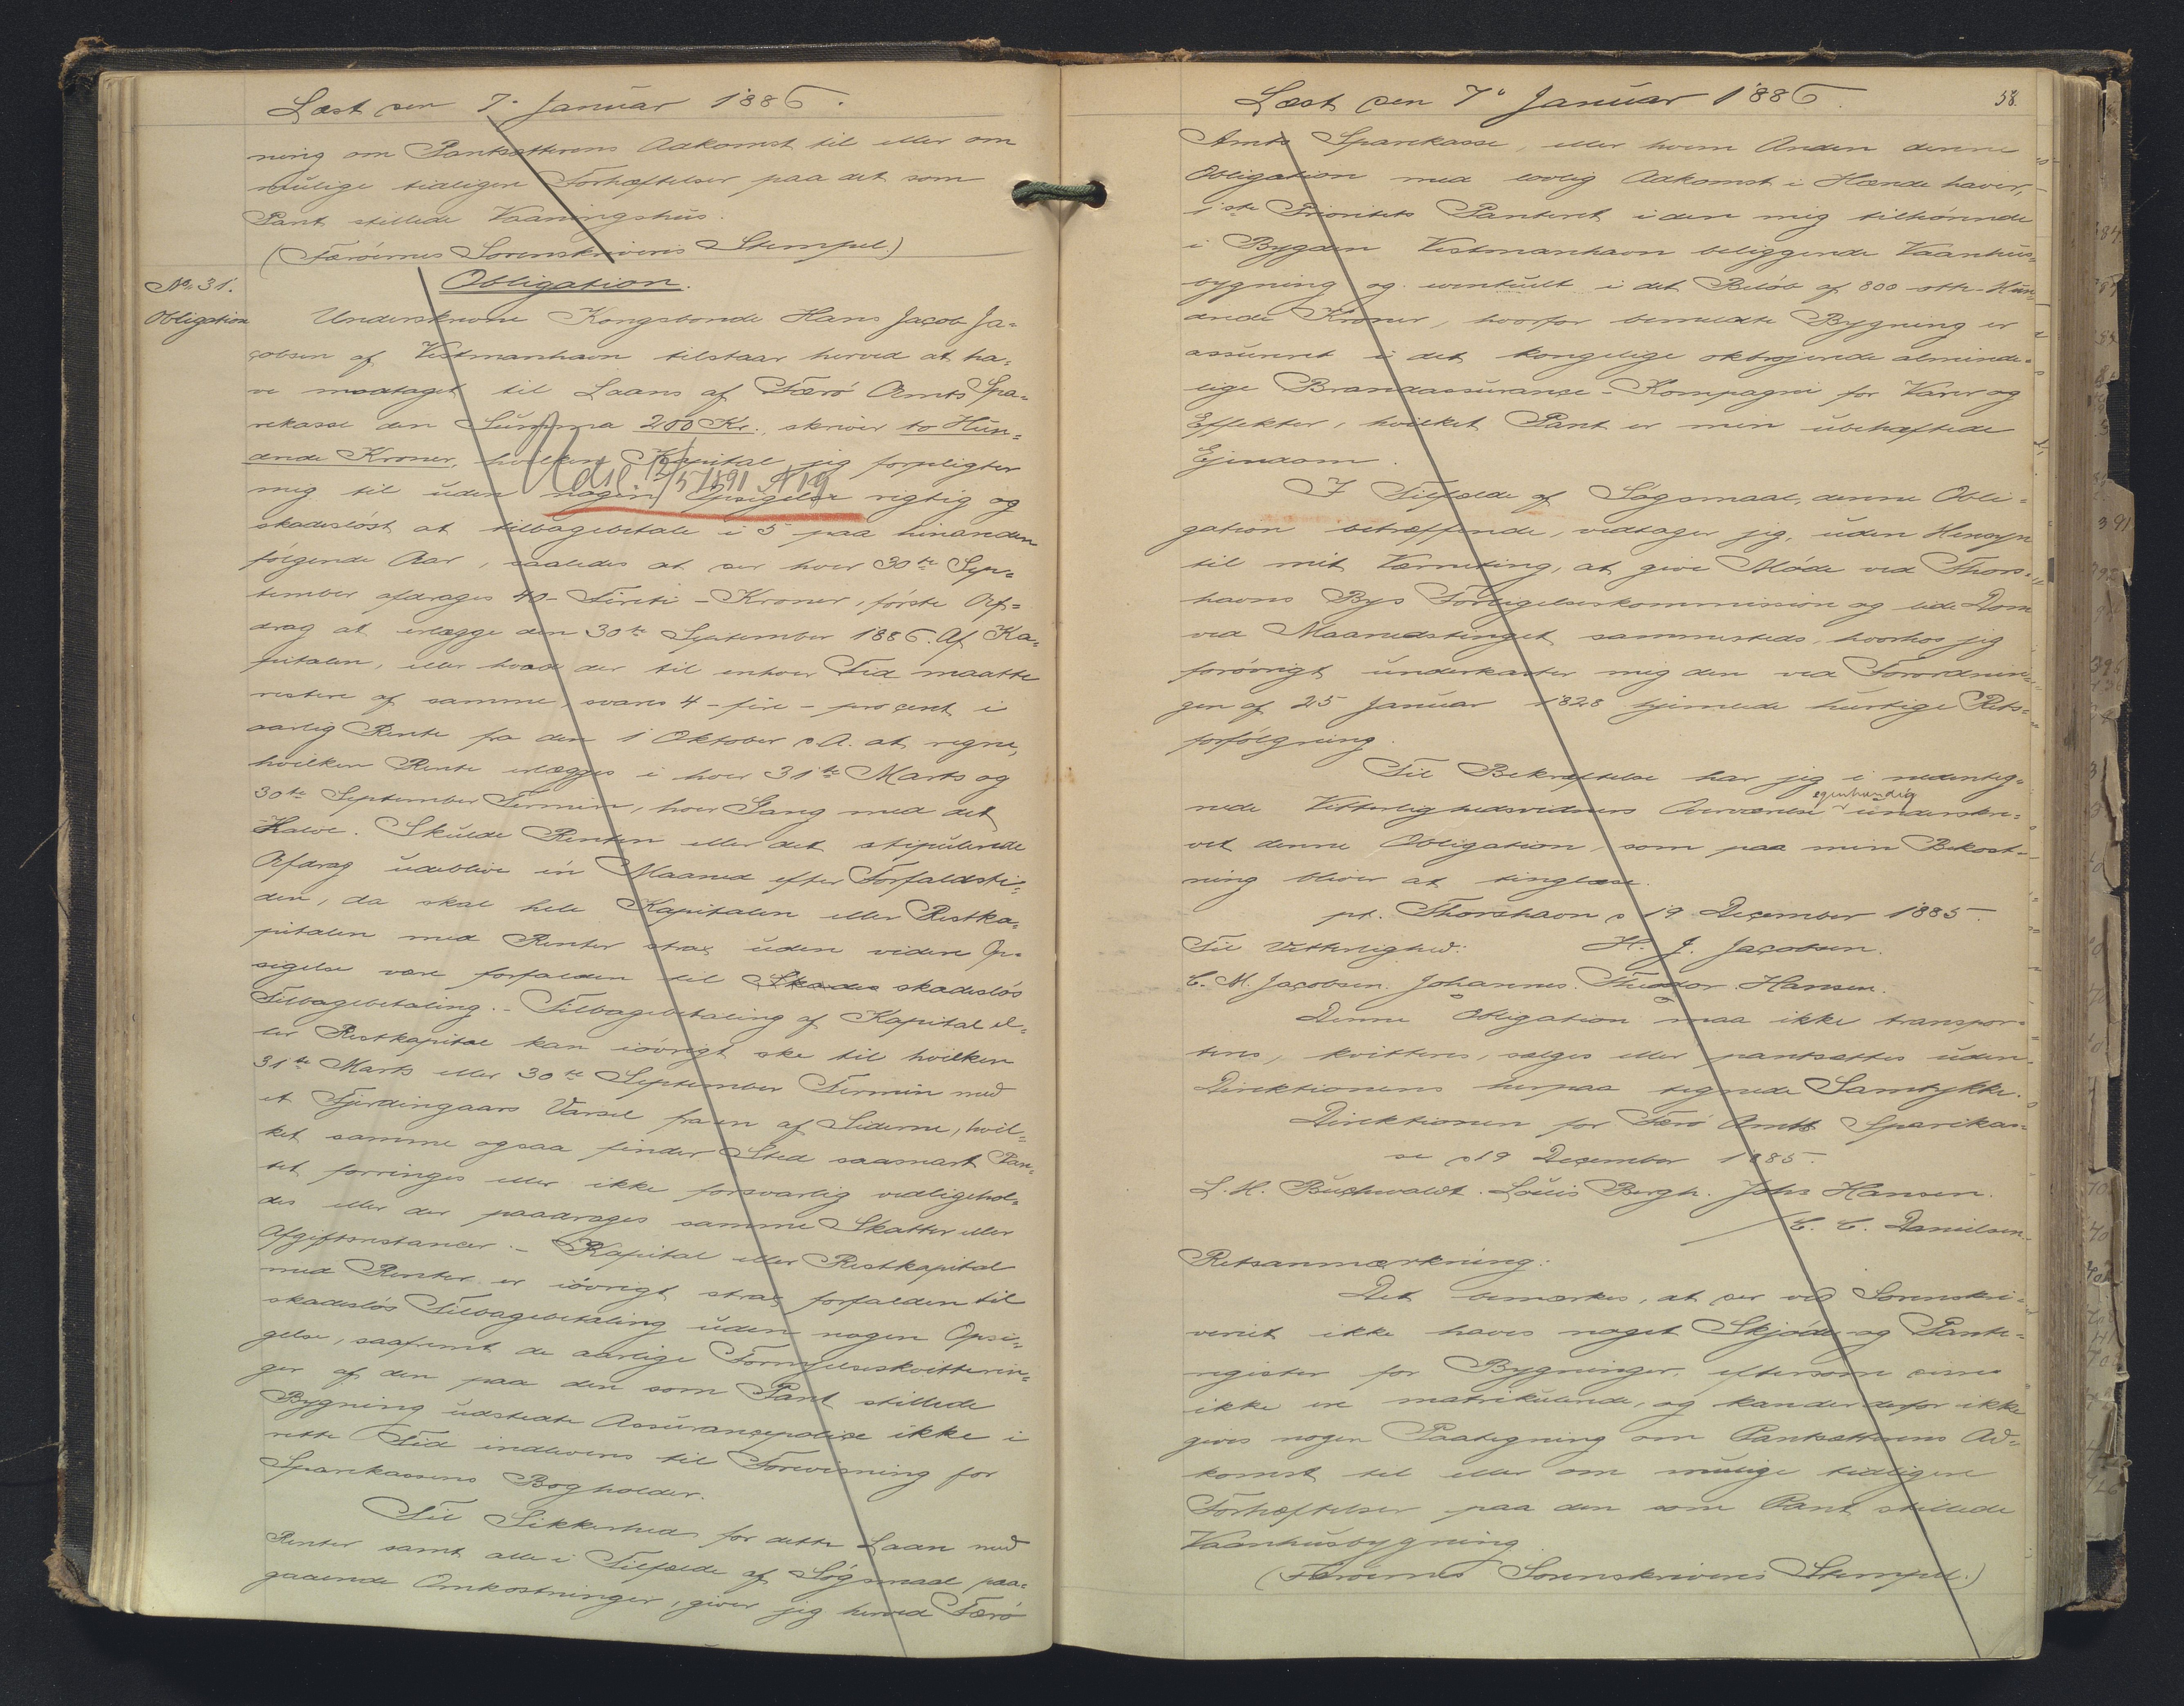 Læst den 7. Januar 1886.
ning om Pantsætterens Adkomst til eller om
mulige tidligere Forhæftelser paa det som
Pant stillede Vaaningshus.
(Færöernes Sorenskriveris Stempel.)
No. 31.
Obligation
Obligation.
Underskrevne Kongsbonde Hans Jacob Ja-
cobsen af Vestmanhavn tilstaar herved at ha-
ve modtaget til Laans af Færö Amts Spa-
rekasse den Summa 200 Kr., skriver to Hun-
drede Kroner, hvilken Kapital jeg forpligter
Udsl. 12/5 1891 N 19
mig til uden nogen Opsigelse rigtig og
skadeslöst at tilbagebetale i 5 paa hinanden
fölgende Aar, saaledes at der hver 30te Sep-
tember afdrages 40 - Fireti - Kroner, förste Af-
drag at erlægge den 30te September 1886. Af Ka-
pitalen, eller hvad der til enhver Tid maatte
restere af samme, svares 4 - fire - procent i
aarlig Rente fra den 1 Oktober d.A. at regne,
hvilken Rente erlægges i hver 31te Marts og
30te September Termin, hver Gang med det
Halve. Skulde Renten eller det stipulerede
Afdrag udeblive én Maaned efter Forfaldsti-
den, da skal hele Kapitalen eller Restka-
pitalen med Renter strax uden videre Op-
sigelse være forfalden til Skades skadeslös
Tilbagebetaling. - Tilbagebetaling af Kapital el-
ler Restkapital kan iövrigt ske til hvilken
31te Marts eller 30te September Termin med
et Fjerdingaars Varsel fra en af Siderne, hvil-
ket samme ogsaa finder Sted saasnart Pan-
tet forringes eller ikke forsvarlig vedligehol-
des eller der paadrages samme Skatter eller
Afgiftsrestancer. - Kapital eller Restkapital
med Renter er iövrigt strax forfalden til
skadeslös Tilbagebetaling uden nogen Opsi-
gelse, saafremt de aarlige Fornyelseskvitterin-
ger af den paa den som Pant stillede
Bygning udstedte Assurancepolice ikke i
rette Tid indleveres til Forevisning for
Sparekassens Bogholder.
Til Sikkerhed for dette Laan med
Renter samt alle i Tilfælde af Sögsmaal paa-
gaaende Omkostninger, giver jeg herved Færö
Læst den 7. Januar 1886.
58.
Amts Sparekasse, eller hvem Anden denne
Obligation med lovlig Adkomst i Hænde haver,
1ste Prioritets Panteret i den mig tilhörende
i Bygden Vestmanhavn beliggende Vaanhus-
bygning og eventuelt i det Belöb af 800 otte Hun-
drede Kroner, hvorfor bemeldte Bygning er
assureret i det kongelige oktrojerede alminde-
lige Brandassurance-Kompagni for Varer og
Effekter, hvilket Pant er min ubehæftede
Ejendom.
I Tilfælde af Sögsmaal, denne Obli-
gation betræffende, vedtager jeg, uden Hensyn
til mit Værneting, at give Möde ved Thors-
havns Bys Forligelseskommission og lide Dom
ved Maanedstinget sammesteds, hvorhos jeg
forövrigt underkaster mig den ved Forordnin-
gen af 25 Januar 1828 hjemlede hurtige Rets-
forfölgning.
Til Bekræftelse har jeg i undenteg-
nede Vitterlighedsvidners Overværelse egenhændig underskre-
vet denne Obligation, som paa min Bekost-
ning bliver at tinglæse.
pt. Thorshavn d 19 December 1885.
Til Vitterlighed: H. J. Jacobsen.
C. M. Jacobsen. Johannes Theodor Hansen.
Denne Obligation maa ikke transpor-
teres, kvitteres, sælges eller pantsættes uden
Direktionens herpaa tegnede Samtykke.
Direktionen for Færö Amts Sparekas-
se d 19 December 1885.
L. H. Buchwaldt. Louis Bergh. Johs Hansen.
/ C. C. Danielsen.
Retsanmærkning:
Det bemærkes, at der ved Sorenskri-
veriet ikke haves noget Skjöde og Pante-
register for Bygninger, eftersom disse
ikke ere matrikulerede, og kan der derfor ikke
gives nogen Paategning om Pantsætterens Ad-
komst til eller om mulige tidligere
Forhæftelser paa den som Pant stillede
Vaanhusbygning.
(Færöernes Sorenskriveris Stempel.)